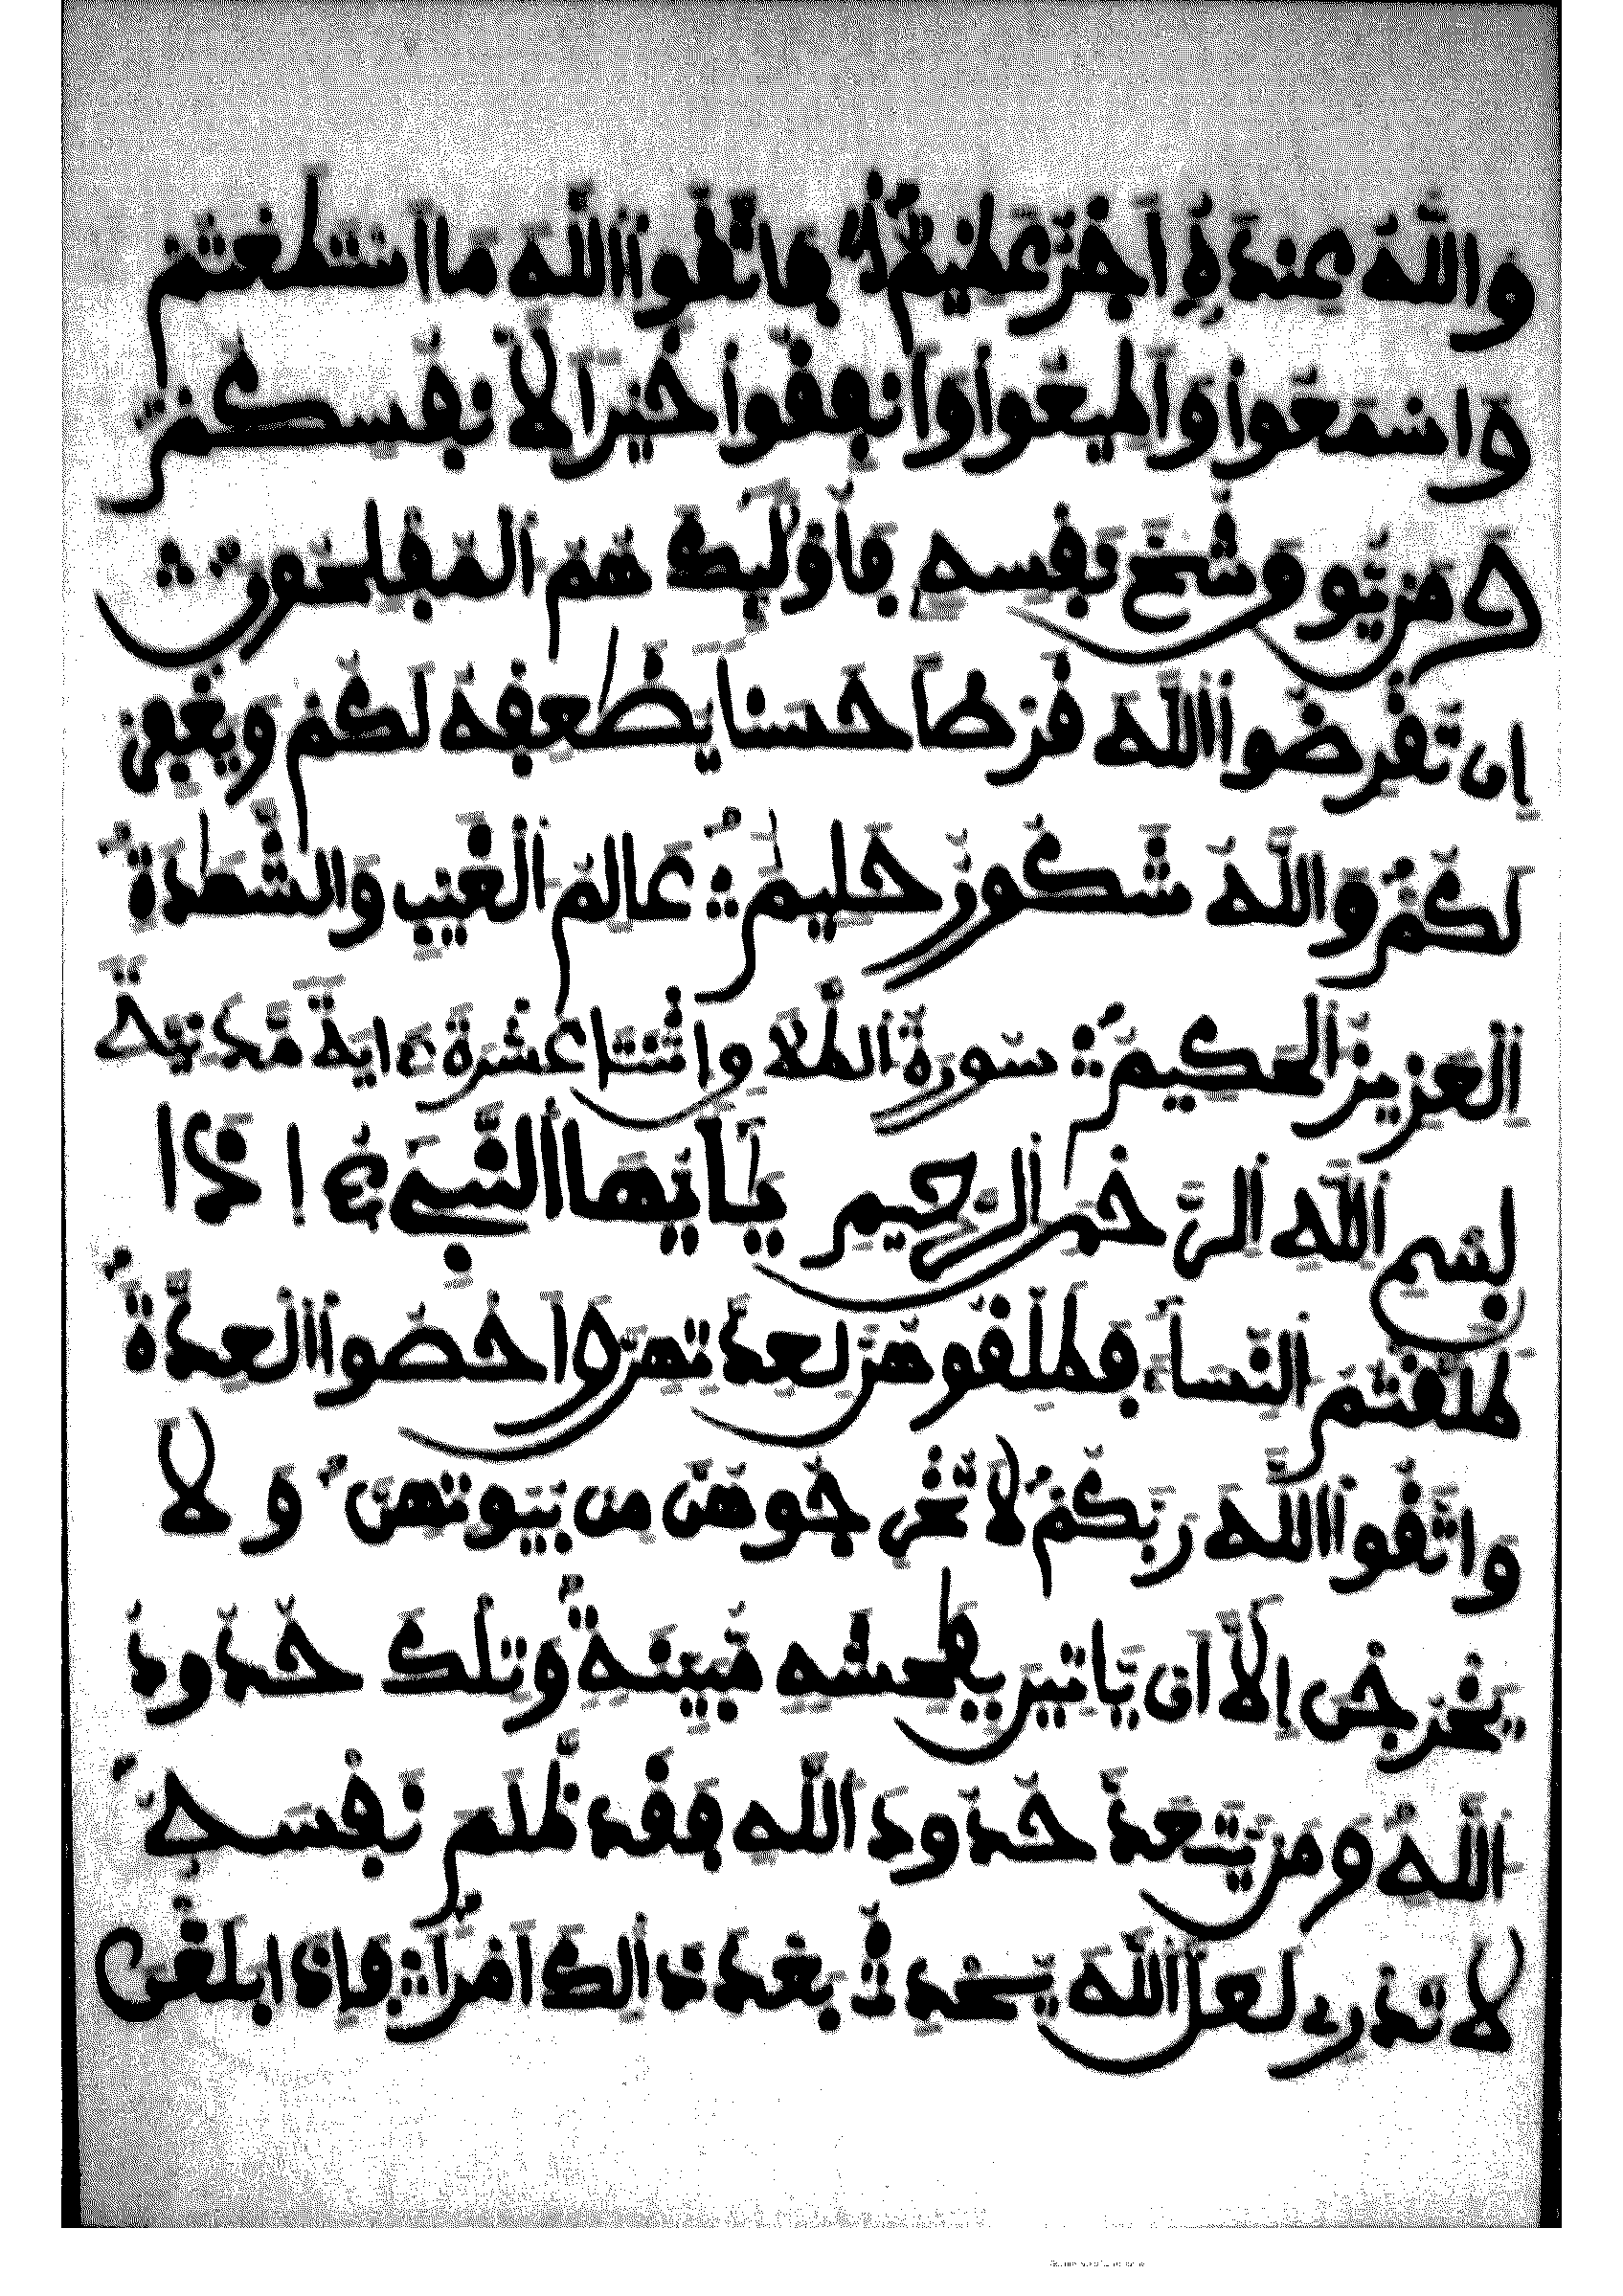 وَاللَّهُ عِندَهُ أَجْرٌ عَظِيمٌ فَاتَّقُوا اللَّهَ مَا اسْتَطَعْتُمْ
وَاسْمَعُوا وَأَطِيعُوا وَأَنفِقُوا خَيْرًا لِأَنفُسِكُمْ
وَمَن يُوقَ شُحَّ نَفْسِهِ فَأُولَٰئِكَ هُمُ الْمُفْلِحُونَ
إِن تُقْرِضُوا اللَّهَ قَرْضًا حَسَنًا يُضَٰعِفْهُ لَكُمْ وَيَغْفِرْ
لَكُمْ وَاللَّهُ شَكُورٌ حَلِيمٌ عَالِمُ الْغَيْبِ وَالشَّهَٰدَةِ
الْعَزِيزُ الْحَكِيمُ سورة الطلاق واثنتا عشرة ءاية مَّدَنِيَّة
بِسْمِ اللَّهِ الرَّحْمَٰنِ الرَّحِيمِ يَٰأَيُّهَا النَّبِيُّ إِذَا
طَلَّقْتُمُ النِّسَاءَ فَطَلِّقُوهُنَّ لِعِدَّتِهِنَّ وَأَحْصُوا الْعِدَّةَ
وَاتَّقُوا اللَّهَ رَبَّكُمْ لَا تُخْرِجُوهُنَّ مِن بُيُوتِهِنَّ وَلَا
يَخْرُجْنَ إِلَّا أَن يَأْتِينَ بِفَٰحِشَةٍ مُّبَيَّنَةٍ وَتِلْكَ حُدُودُ
اللَّهِ وَمَن يَتَعَدَّ حُدُودَ اللَّهِ فَقَدْ ظَلَمَ نَفْسَهُ
لَا تَدْرِي لَعَلَّ اللَّهَ يُحْدِثُ بَعْدَ ذَٰلِكَ أَمْرًا فَإِذَا بَلَغْنَ